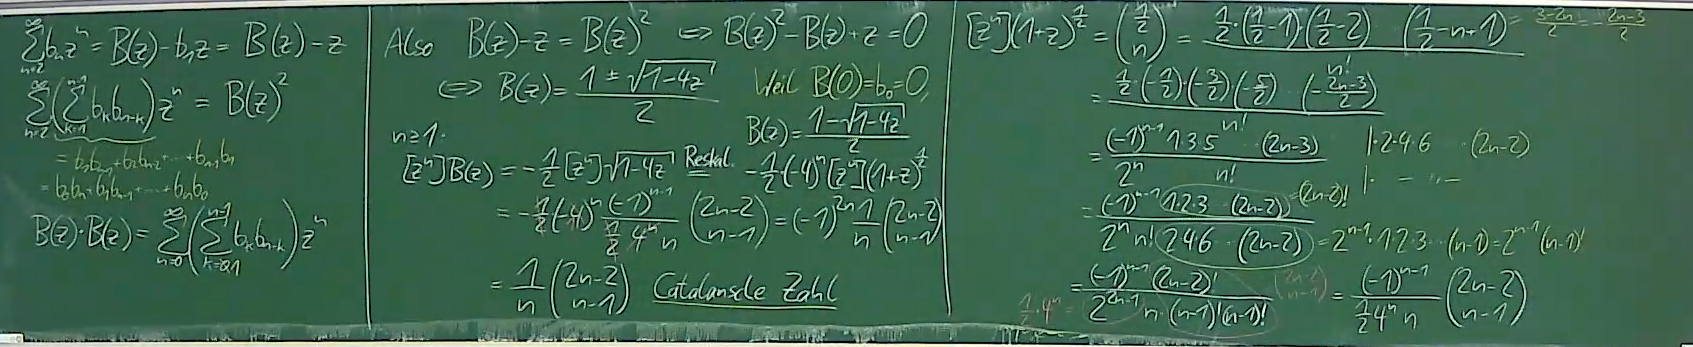 ∞∑n=2 bₙzⁿ = B(z) - b₁z = B(z) - z
∞∑n=2 (n-1∑k=1 bₖbₙ₋ₖ) zⁿ = B(z)²
= b₁bₙ₋₁ + b₂bₙ₋₂ + ··· + bₙ₋₁b₁
= b₀bₙ + b₁bₙ₋₁ + ··· + bₙb₀
B(z)·B(z) = ∞∑n=0 (n-1∑k=01 bₖbₙ₋ₖ) zⁿ
Also B(z) - z = B(z)² ⇔ B(z)² - B(z) + z = 0
⇔ B(z) = (1 ± √(1-4z))/2 Weil B(0) = b₀ = 0,
B(z) = (1 - √(1-4z))/2
n ≥ 1:
[zⁿ]B(z) = -1/2 [zⁿ] √(1-4z) Reskal. -1/2·(-4)ⁿ [zⁿ](1+z)^(1/2)
= -1/2 (-4)ⁿ (-1)ⁿ⁻¹/(1/2 4ⁿ n) (2n-2 n-1) = (-1)²ⁿ 1/n (2n-2 n-1)
= 1/n (2n-2 n-1) Catalansche Zahl
[zⁿ](1+z)^(1/2) = (1/2 n) = 1/2·(1/2-1)(1/2-2) (1/2-n+1) / n! = 3-2n/2 = -2n-3/2
= 1/2·(-1/2)·(-3/2)(-5/2) (-2n-3/2) / n!
= (-1)ⁿ⁻¹ 1·3·5 ··· (2n-3) / 2ⁿ n! | 1·2·4·6 ··· (2n-2)
= (-1)ⁿ⁻¹ 1·2·3 ··· (2n-2) / 2ⁿ n! 2·4·6 ··· (2n-2) = (2n-2)!
= 2ⁿ⁻¹·1·2·3 ··· (n-1) = 2ⁿ⁻¹(n-1)!
= (-1)ⁿ⁻¹ (2n-2)! / 2²ⁿ⁻¹ n·(n-1)!(n-1)! (2n-2 n-1) = (-1)ⁿ⁻¹/(1/2 4ⁿ n) (2n-2 n-1)
1/2·4ⁿ =